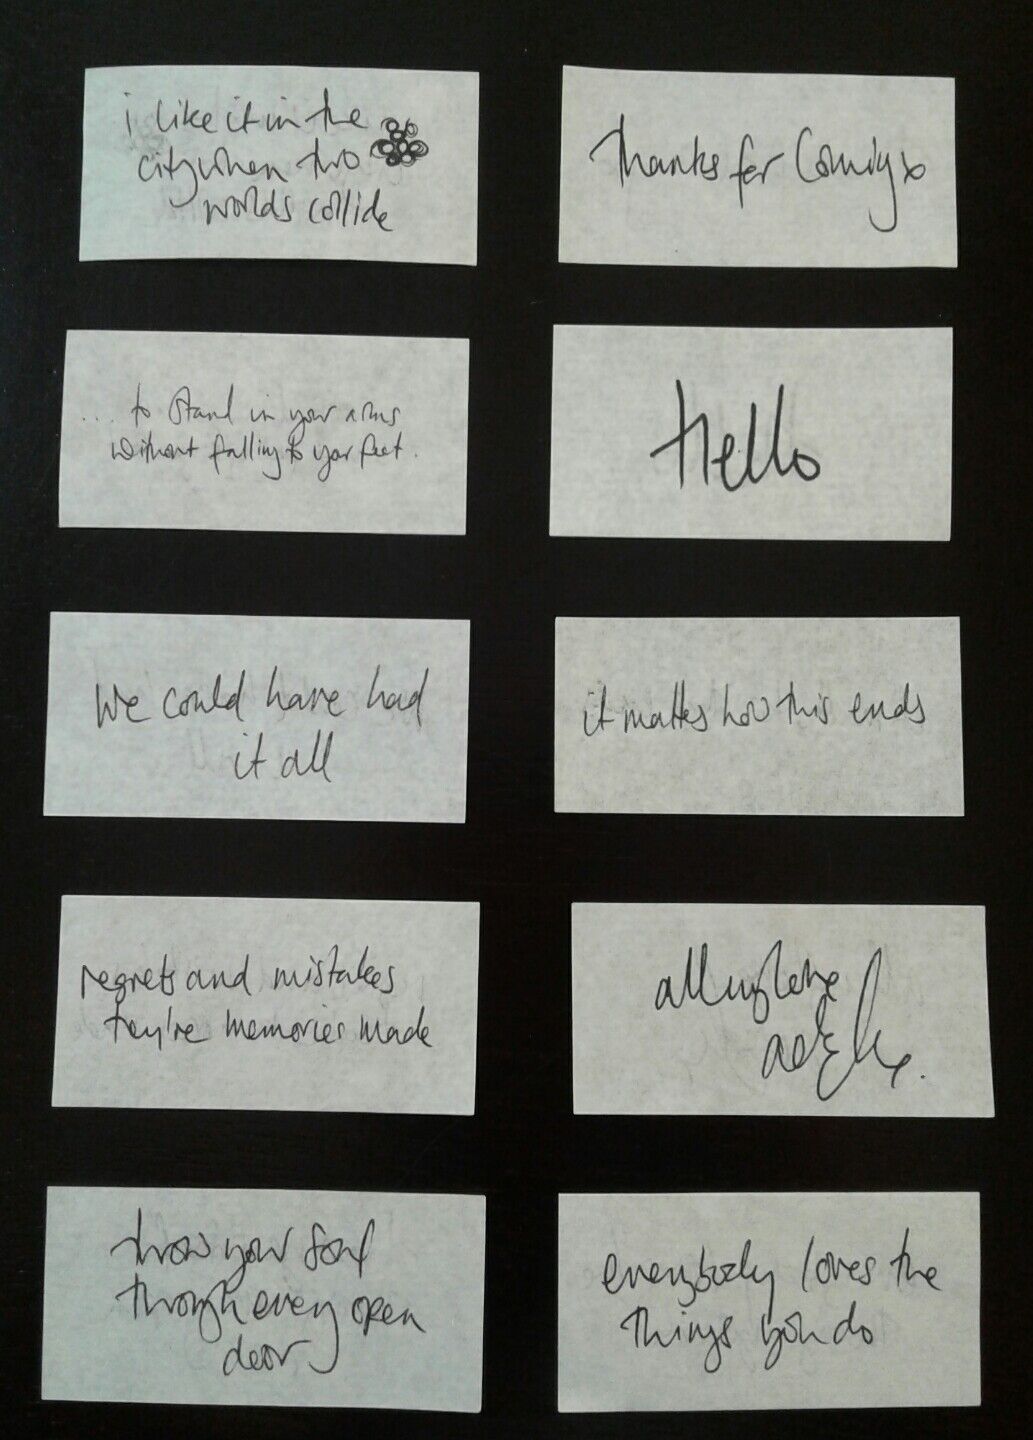 i like it in the
city when two
worlds collide
thanks for coming x
... to stand in your arms
without falling to your feet.
Hello
We could have had
it all
it matters how this ends
regrets and mistakes
they're memories made
all my love
adele x.
throw your soul
through every open
door
everybody loves the
things you do